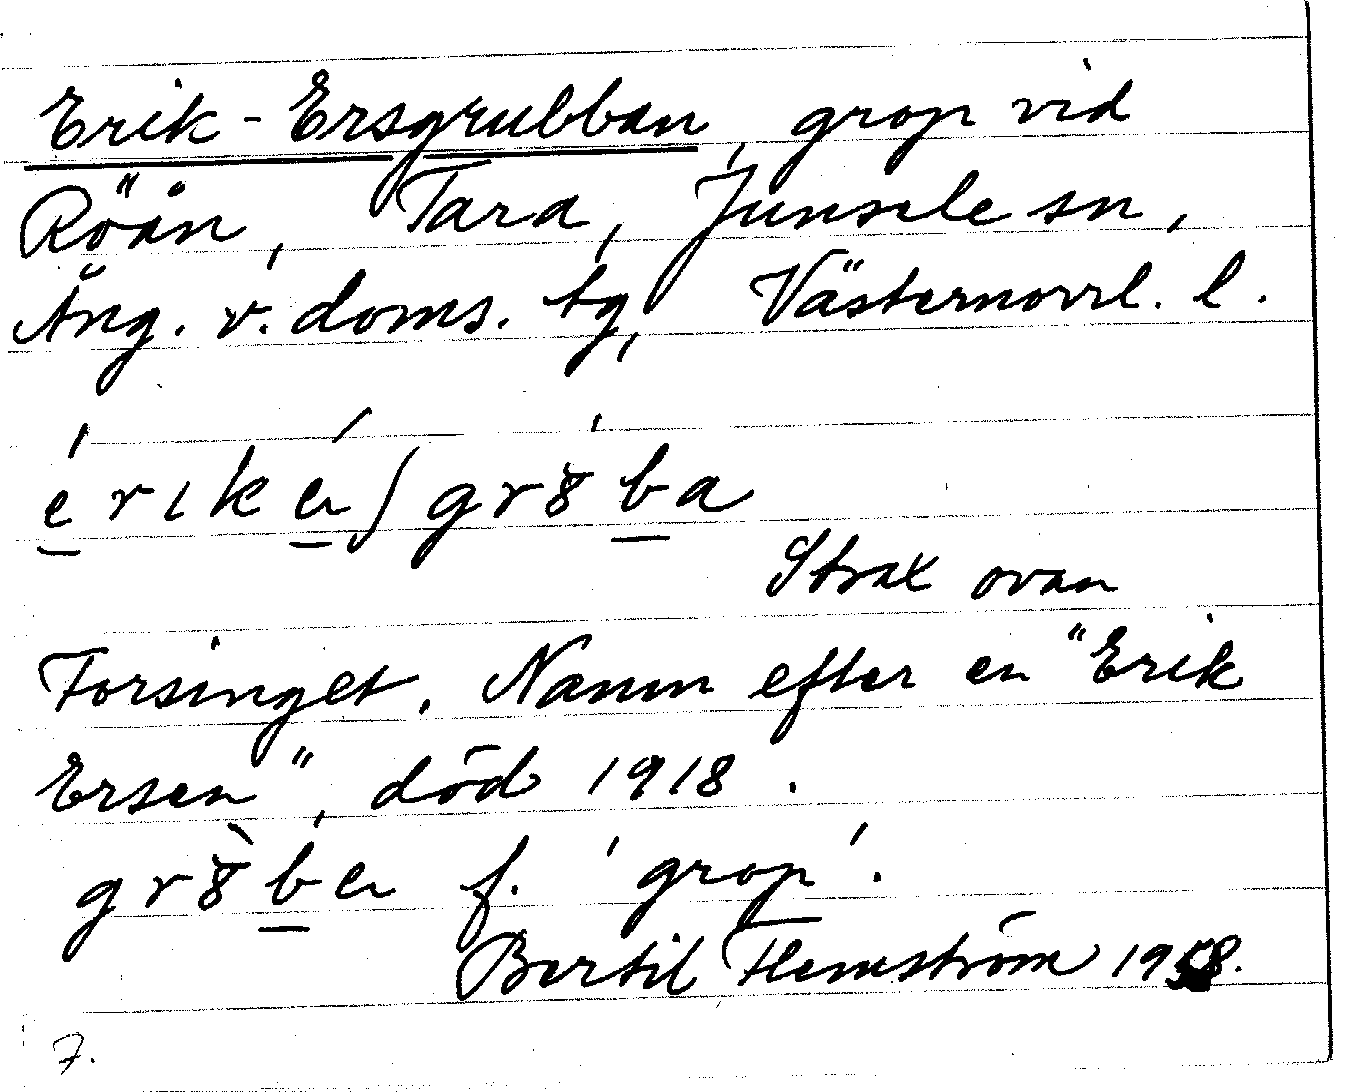 Erik-Ersgrubban, grop vid
Röån, Tara, Junsele sn,
Ång. v. doms. tg, Västernorrl. l.
Strax ovan
Forsinget. Namn efter en "Erik
Ersen", död 1918.
f. 'grop'.
Bertil Flemström 1958.
7.